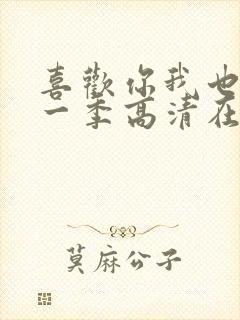 喜歡你我也
一季高清在
莫麻公子